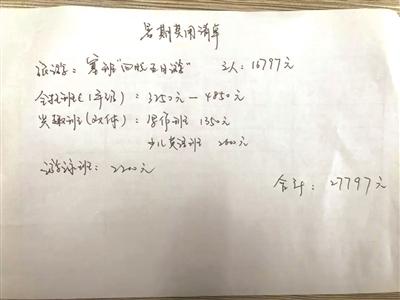 暑期费用清单
旅游：塞班“四晚五日游” 三人：16797元
全托班：3250元—4850元
兴趣班：写作班 1350元
少儿英语班 2600元
游泳班：2200元
合计：27797元